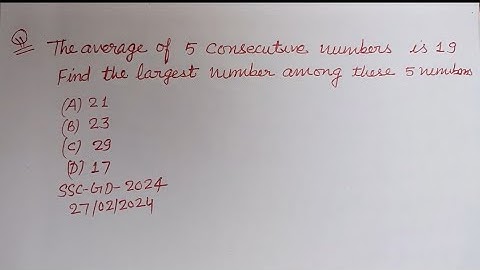 Q The average of 5 consecutive numbers is 19
Find the largest number among these 5 numbers
(A) 21
(B) 23
(C) 29
(D) 17
SSC-GD-2024
27/02/2024